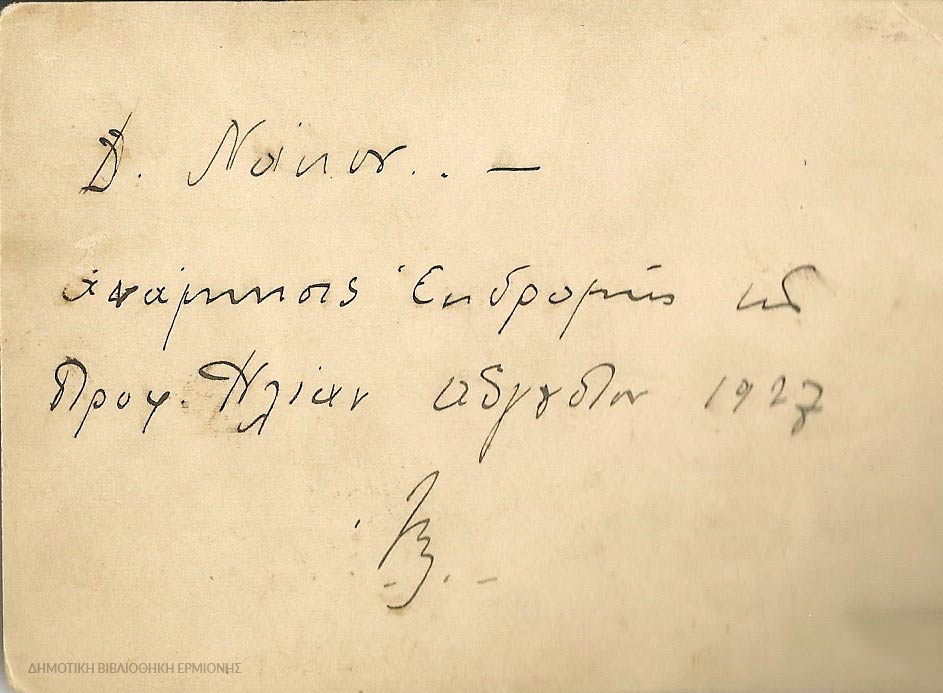 Δ. Νάκου.. —
ἀνάμνησις Ἐκδρομῆς εἰς
Προφ. Ἠλίαν Αὔγουστον 1927
ΔΗΜΟΤΙΚΗ ΒΙΒΛΙΟΘΗΚΗ ΕΡΜΙΟΝΗΣ